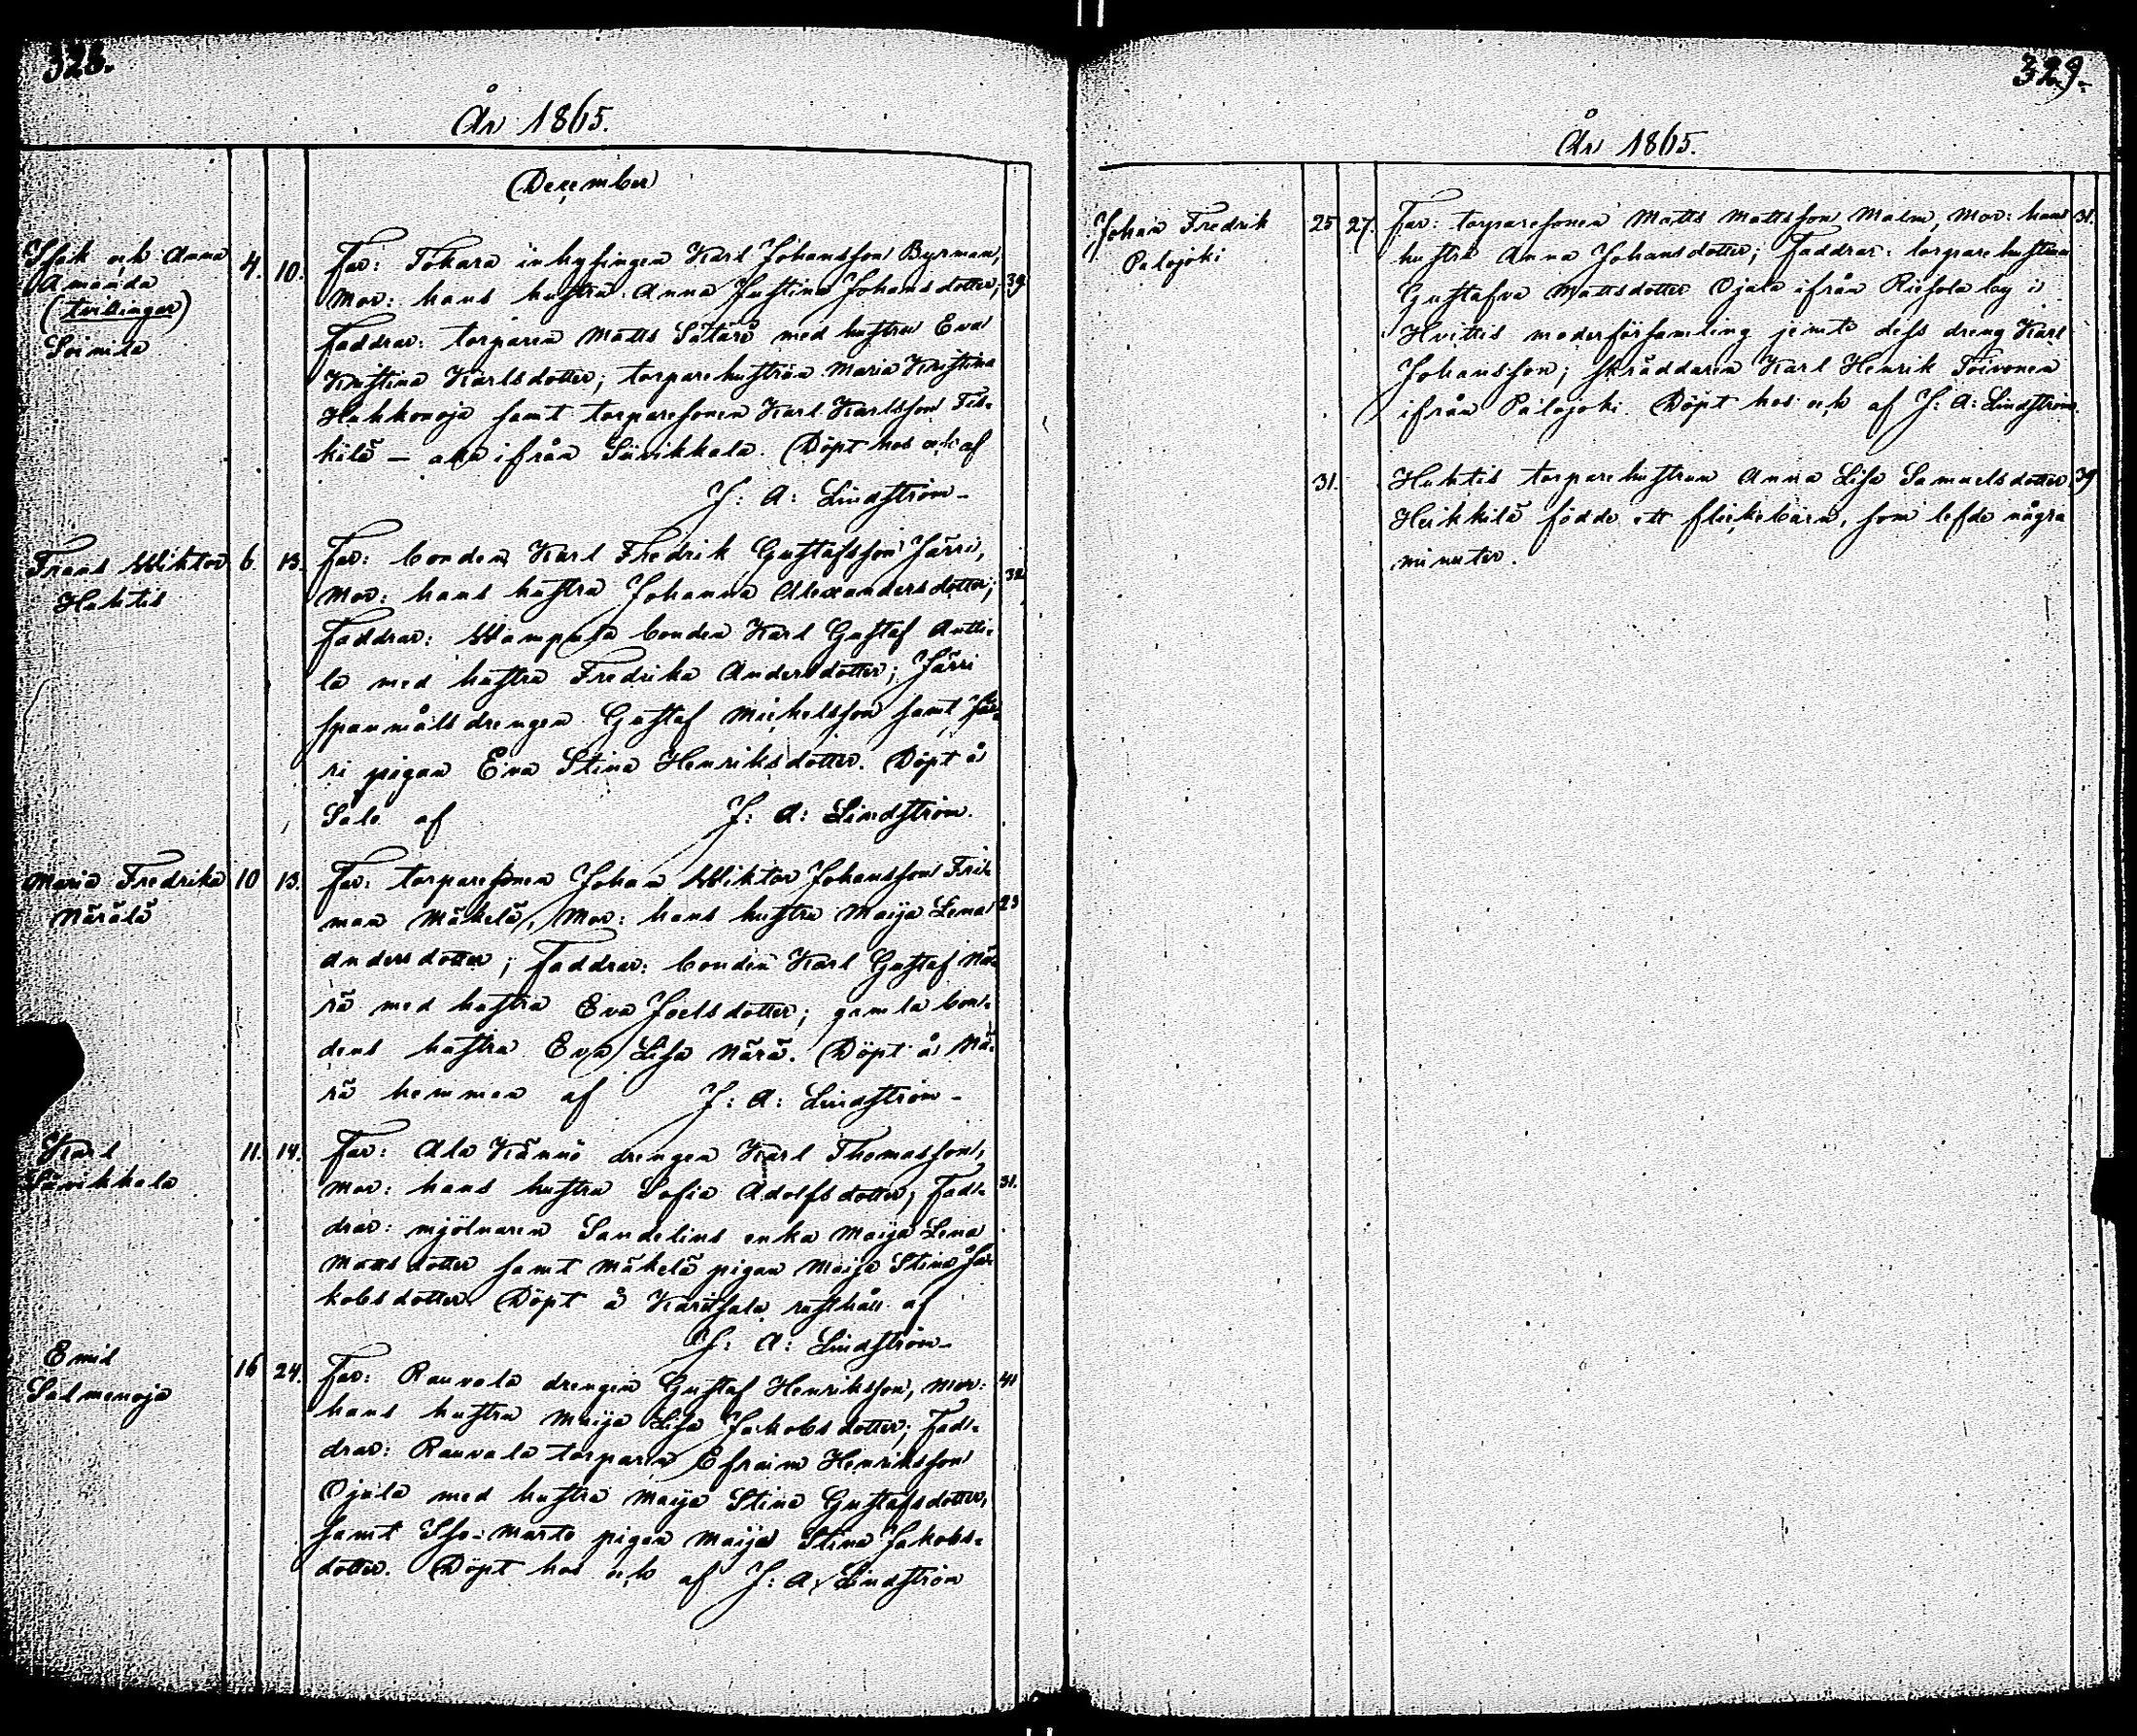 328.
År 1865.
(December)
Isak och Anna
Amanda
(tvillingar)
Soinila
4. 10.
Far: Tokara inhysingen Karl Johansson Byrman,
Mor: hans hustru Anna Justina Johansdotter; 39
Faddrar: torparen Matts Sätärö med hustru Eva
Kristina Karlsdotter; torparehustrun Maria Kristina
Huhkonoja samt torparesonen Karl Karlsson
kilä — alla ifrån Suvikkala. Döpt hos och af
J: A: Lindström
Frans Wiktor
Huhtis
6. 13.
Far: bonden Karl Fredrik Gustafsson Järri,
Mor: hans hustru Johanna Alexandersdotter; 32
Faddrar: Wampula bonden Karl Gustaf Antti-
la med hustru Fredrika Andersdotter; Järri
spanmålsdrengen Gustaf Michelsson samt Jär-
ri pigan Eva Stina Henriksdotter. Döpt å
Salo af J: A: Lindström.
Maria Fredrika
Närälä
10 13.
Far: torparesonen Johan Wiktor Johansson Fri-
man Mäkelä, Mor: hans hustru Maija Lena 23
Andersdotter; Faddrar: bonden Karl Gustaf Nä-
rä med hustru Eva Joelsdotter; gamla bon-
dens hustru Eva Lisa Närä. Döpt å Nä-
rä hemman af J: A: Lindström
Karl
Suvikkala
11. 14.
Far: Ala Kännö drengen Karl Thomasson,
Mor: hans hustru Sofia Adolfsdotter; Fad- 31.
drar: mjölnaren Sandelins enka Maija Lena
Mattsdotter samt Mäkelä pigan Maija Stina Ja-
kobsdotter. Döpt å Karitsala rusthåll af
J: A: Lindström
Emil
Salmenoja
16 24.
Far: Rauvola drengen Gustaf Henriksson, Mor: 41
hans hustru Maija Lisa Jakobsdotter; Fad-
drar: Rauvola torparen Efraim Henriksson
Ojala med hustru Maija Stina Gustafsdotter,
samt Iso-Marto pigan Maija Stina Jakobs-
dotter. Döpt hos och af J: A: Lindström
329.
År 1865.
Johan Fredrik
Palojoki
25 27.
Far: torparesonen Matts Mattsson Malm, Mor: hans 31.
hustru Anna Johansdotter; Faddrar: torparehustrun
Gustafva Mattsdotter Ojala ifrån Riesola by i
Hvittis moderförsamling jemte dess dreng Karl
Johansson; skräddaren Karl Henrik Toivonen
ifrån Palojoki. Döpt hos och af J: A: Lindström.
31.
Huhtis torparehustrun Anna Lisa Samuelsdotter 39
Heikkilä födde ett flickebarn, som lefde några
minuter.